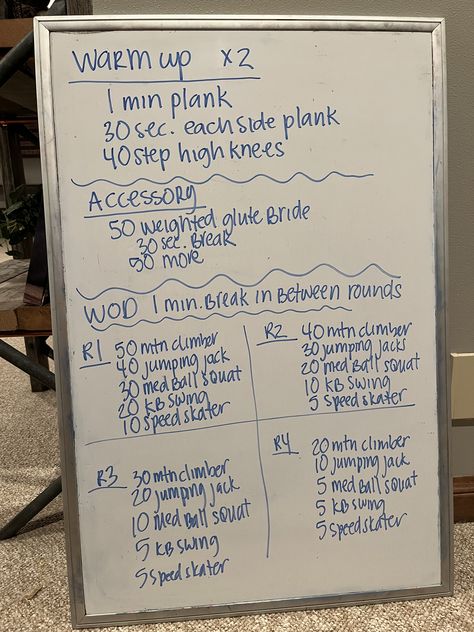 Warm up x2
1 min plank
30 sec. each side plank
40 step high knees
Accessory
50 weighted glute Bride
30 sec. Break
50 more
WOD 1 min. Break in Between rounds
R1 50 mtn climber
40 jumping jack
30 med Ball squat
20 KB swing
10 speed skater
R2 40 mtn climber
30 jumping jacks
20 med Ball squat
10 KB swing
5 speed skater
R3 30 mtn climber
20 jumping jack
10 med Ball squat
5 KB swing
5 speed skater
R4 20 mtn climber
10 jumping jack
5 med Ball squat
5 KB swing
5 speed skater